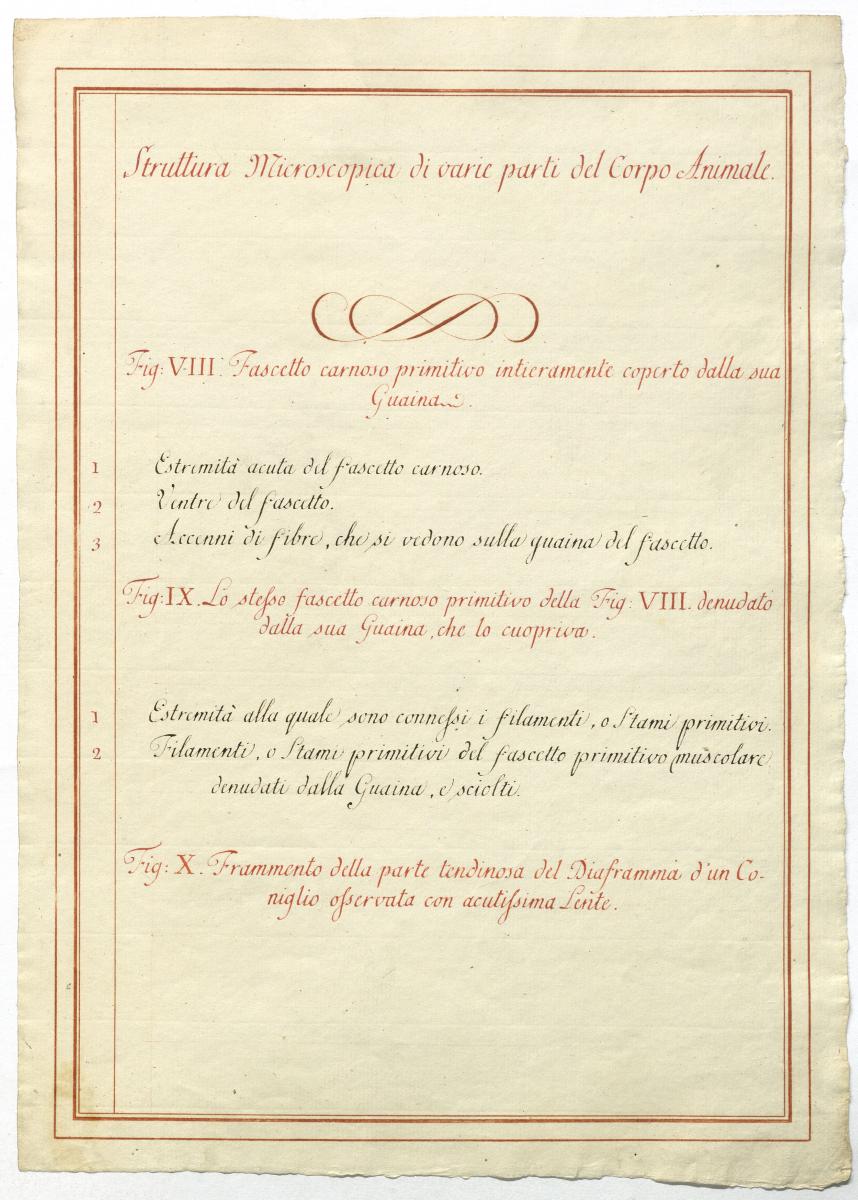 Struttura Microscopica di varie parti del Corpo Animale.
Fig: VIII. Fascetto carnoso primitivo intieramente coperto dalla sua
Guaina.
1 Estremità acuta del fascetto carnoso.
2 Ventre del fascetto.
3 Accenni di fibre, che si vedono sulla guaina del fascetto.
Fig: IX. Lo steſso fascetto carnoso primitivo della Fig: VIII. denudato
dalla sua Guaina, che lo cuopriva.
1 Estremità alla quale sono conneſsi i filamenti, o Stami primitivi.
2 Filamenti, o Stami primitivi del fascetto primitivo muscolare
denudati dalla Guaina, e sciolti.
Fig: X. Frammento della parte tendinosa del Diaframma d'un Co-
niglio oſservata con acutiſsima Lente.